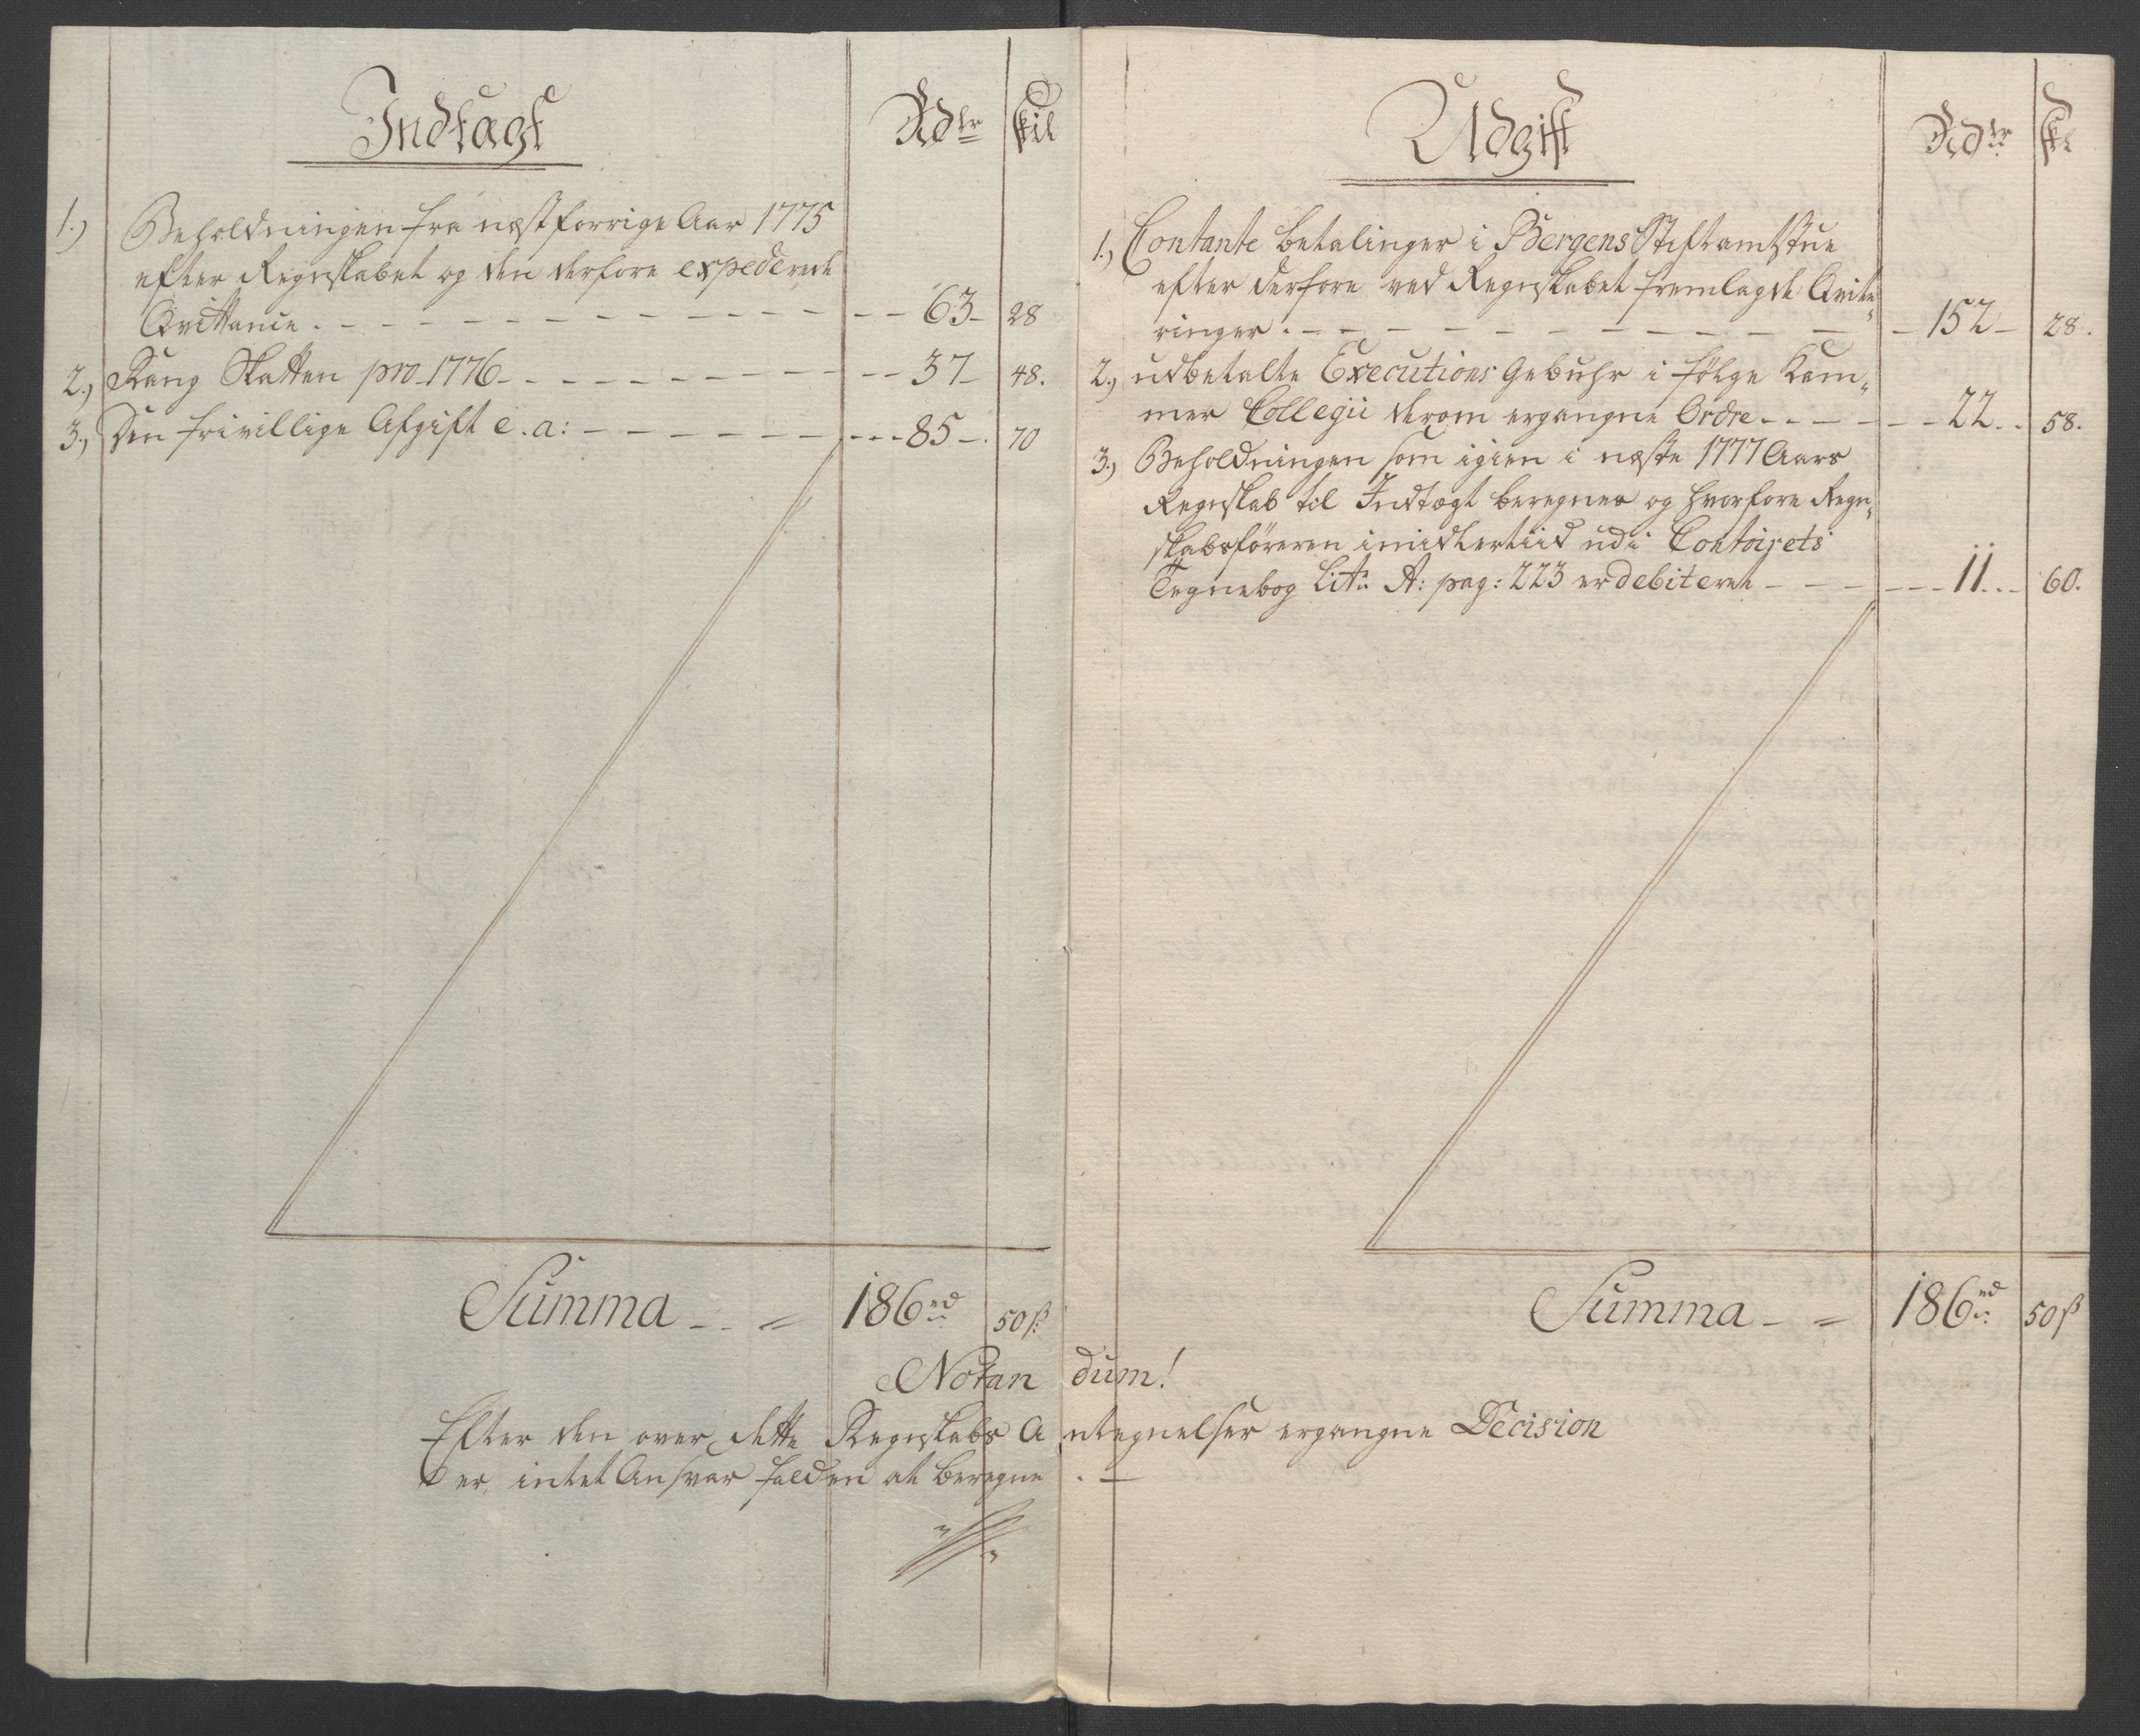 Indtægt
Rdlr
skil
1.) Beholdningen fra næstforrige Aar 1775
efter Regnskabet og den derfore expederede
Qvittance . - - - - 63 - 28
2.) Rang Skatten pro 1776 - - - - 37 - 48.
3.) Den frivillige Afgift e. a: - - - - 85 - 70
Summa - - = 186 rd 50 ß
Udgift
Rdlr
sk
1.) Contante betalinger i Bergens Stiftamtstue
efter derfore ved Regnskabet fremlagde Qvite„
ringer . - - - - 152 - 28.
2.) udbetalte Executions Gebuhr i følge Kam„
mer Collegii derom ergangne Ordre - - - - 22 - 58.
3.) Beholdningen som igien i næste 1777 Aars
Regnskab til Indtægt beregnes og hvorfore Regn„
skabsføreren imidlertiid udi Contoirets
Tegnebog Litr: A: pag: 223 er debiteret - - - - 11 - 60.
Summa - = 186 rd 50 ß
Notandum!
Efter den over dette Regnskabs Antegnelser ergangne Decision
er intet Ansvar falden at beregne . —